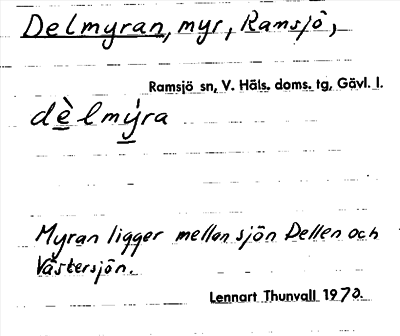 Delmyran, myr, Ramsjö,
Ramsjö sn, V. Häls. doms. tg, Gävl. l.
dèlmýra
Myran ligger mellan sjön Dellen och
Västersjön.
Lennart Thunvall 1970.